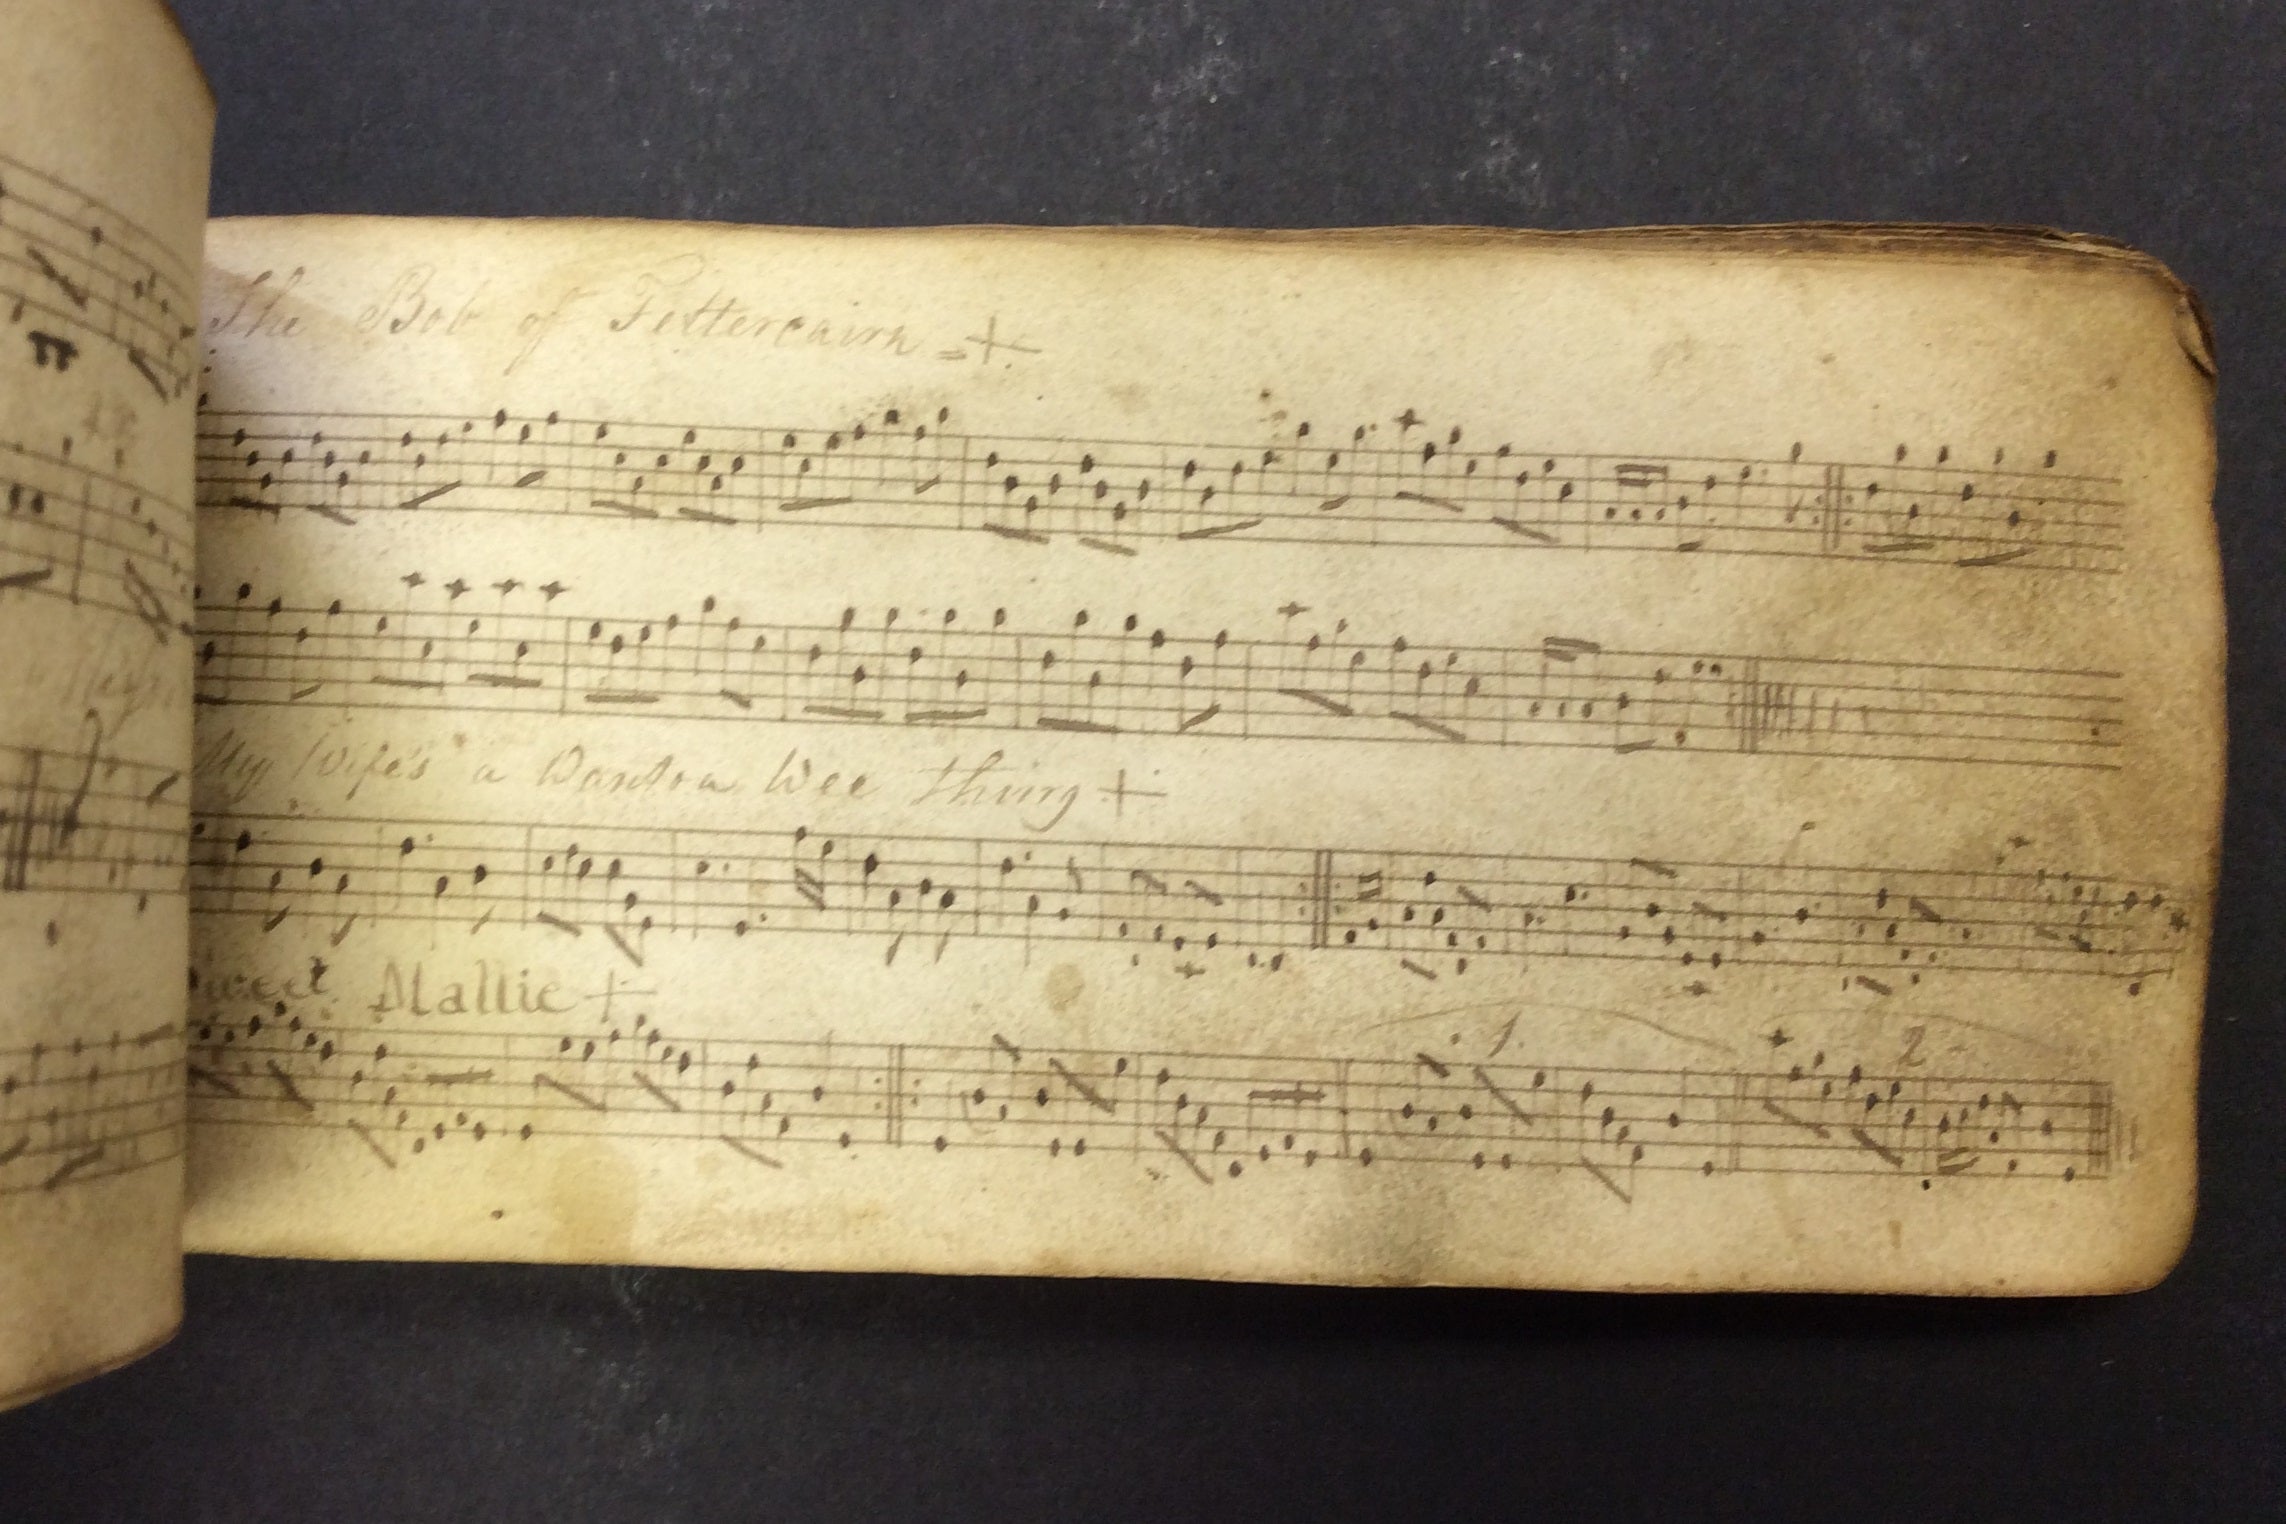 The Bob of Fettercairn =+
My Wife's a Wanton Wee thing +
Sweet Mallie +
1.
2